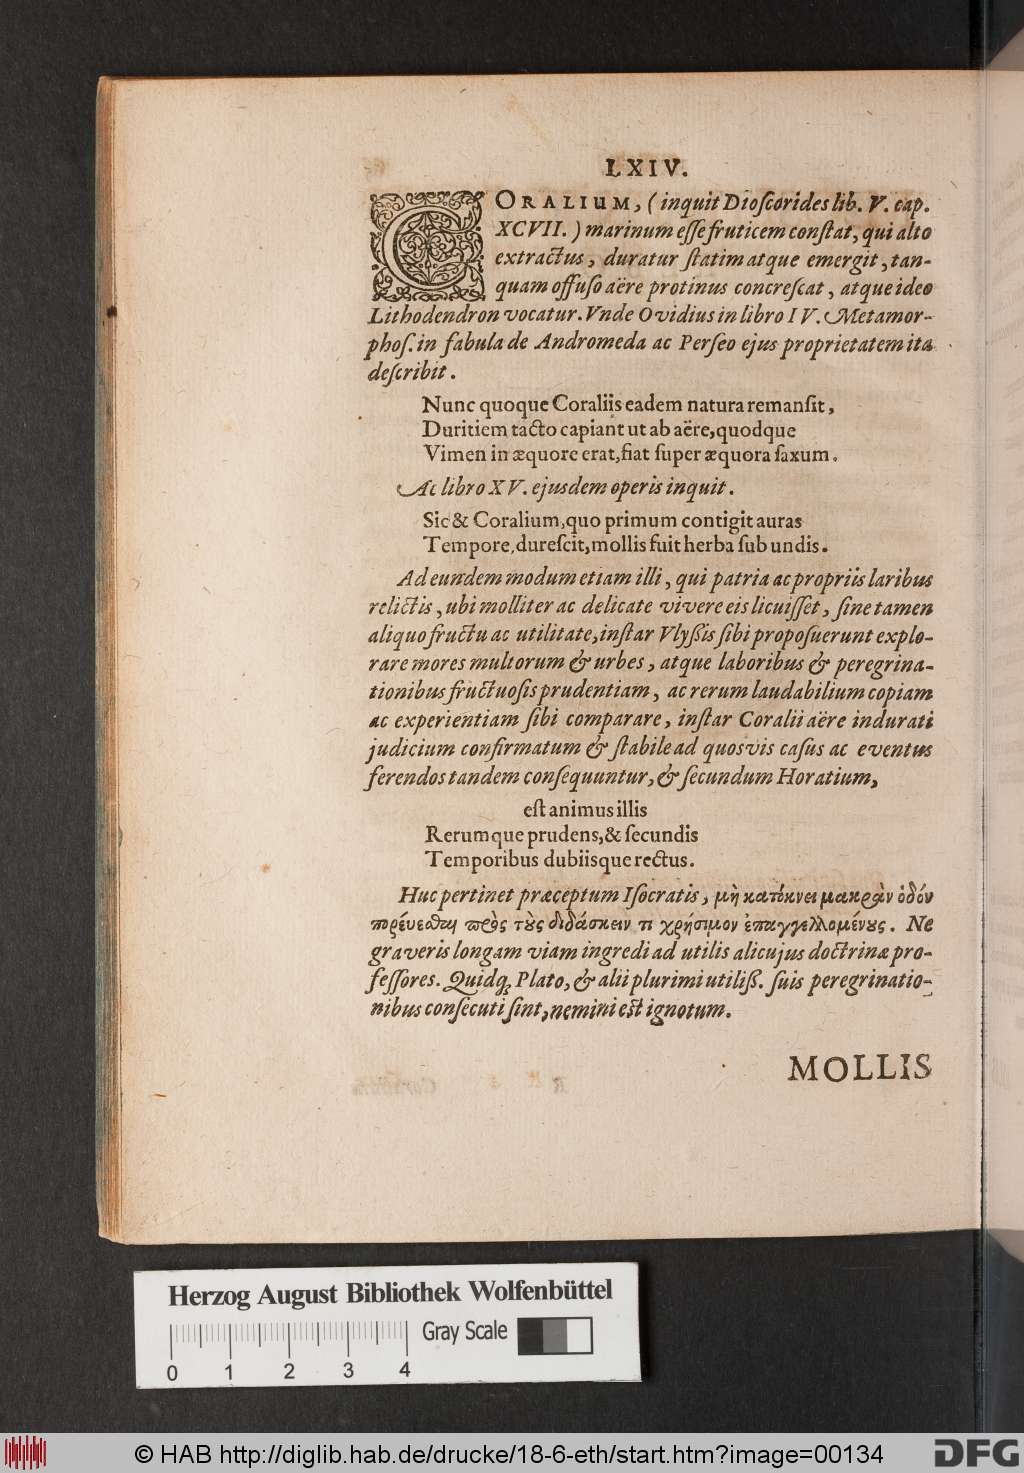 LXIV.
CORALIUM, (inquit Dioſcorides lib. V. cap.
XCVII.) marinum eſſe fruticem conſtat, qui alto
extractus, duratur ſtatim atque emergit, tan-
quam offuſo aëre protinus concreſcat, atque ideo
Lithodendron vocatur. Vnde Ovidius in libro IV. Metamor-
phoſ. in fabula de Andromeda ac Perſeo ejus proprietatem ita
deſcribit.
Nunc quoque Coraliis eadem natura remanſit,
Duritiem tacto capiant ut ab aëre, quodque
Vimen in æquore erat, fiat ſuper æquora ſaxum.
Ac libro XV. ejusdem operis inquit.
Sic & Coralium, quo primum contigit auras
Tempore, dureſcit, mollis fuit herba ſub undis.
Ad eundem modum etiam illi, qui patria ac propriis laribus
relictis, ubi molliter ac delicate vivere eis licuiſſet, ſine tamen
aliquo fructu ac utilitate, inſtar Vlyßis ſibi propoſuerunt explo-
rare mores multorum & urbes, atque laboribus & peregrina-
tionibus fructuoſis prudentiam, ac rerum laudabilium copiam
ac experientiam ſibi comparare, inſtar Coralii aëre indurati
judicium confirmatum & ſtabile ad quosvis caſus ac eventus
ferendos tandem conſequuntur, & ſecundum Horatium,
eſt animus illis
Rerumque prudens, & ſecundis
Temporibus dubiisque rectus.
Huc pertinet præceptum Iſocratis, μὴ κατόκνει μακρὰν ὁδόν
πορεύεσθαι πρὸς τοὺς διδάσκειν τι χρήσιμον ἐπαγγελλομένους. Ne
graveris longam viam ingredi ad utilis alicujus doctrinæ pro-
feſſores. Quidq; Plato, & alii plurimi utiliß. ſuis peregrinatio-
nibus conſecuti ſint, nemini eſt ignotum.
MOLLIS
Herzog August Bibliothek Wolfenbüttel
Gray Scale
0 1 2 3 4
© HAB http://diglib.hab.de/drucke/18-6-eth/start.htm?image=00134
DFG